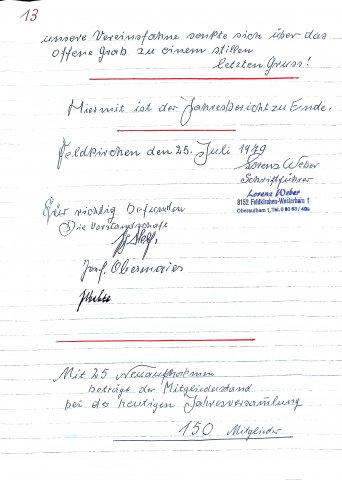 13
unsere Vereinsfahne senkte sich über das
offene Grab zu einem stillen
letzten Gruss!
Hiermit ist der Jahresbericht zu Ende.
Feldkirchen den 25. Juli 1979
Lorenz Weber
Schriftführer
Lorenz Weber
8152 Feldkirchen-Westerham 1
Oberaufham 1, Tel. 0 80 63 /
Für richtig befunden
Die Vorstandschaft
Josf. Obermaier
Mit 25 Neuaufnahmen
beträgt der Mitgliederstand
bei der heutigen Jahresversamlung
150 Mitglieder